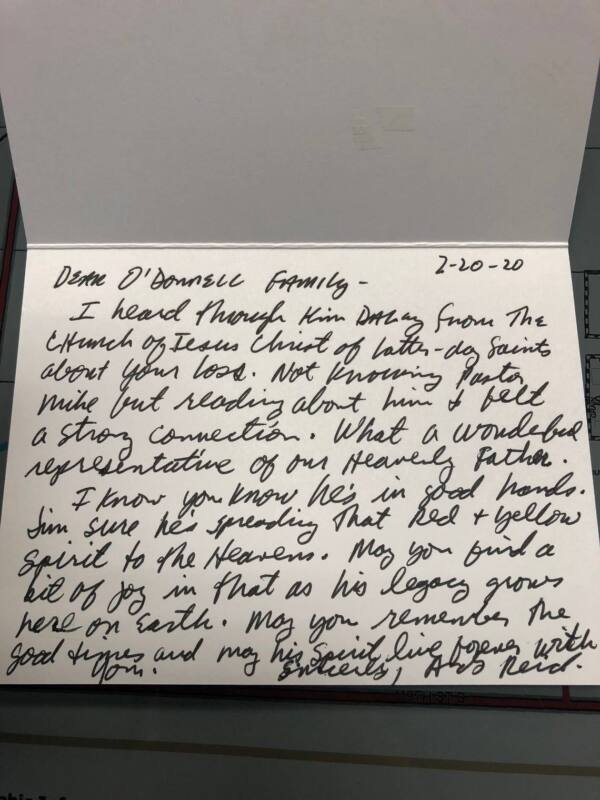 2-20-20
Dear O'Donnell Family -
I heard through Kim from The
Church of Jesus Christ of latter-day Saints
about your loss. Not Knowing Pastor
Mike but reading about him I felt
a strong connection. What a wonderful
representative of our Heavenly Father.
I Know you Know he's in good hands.
I'm sure he's spreading that Red + yellow
spirit to the Heavens. May you find a
bit of joy in that as his legacy grows
here on Earth. May you remember the
good times and may his spirit live forever with
you. Sincerely, Reid.